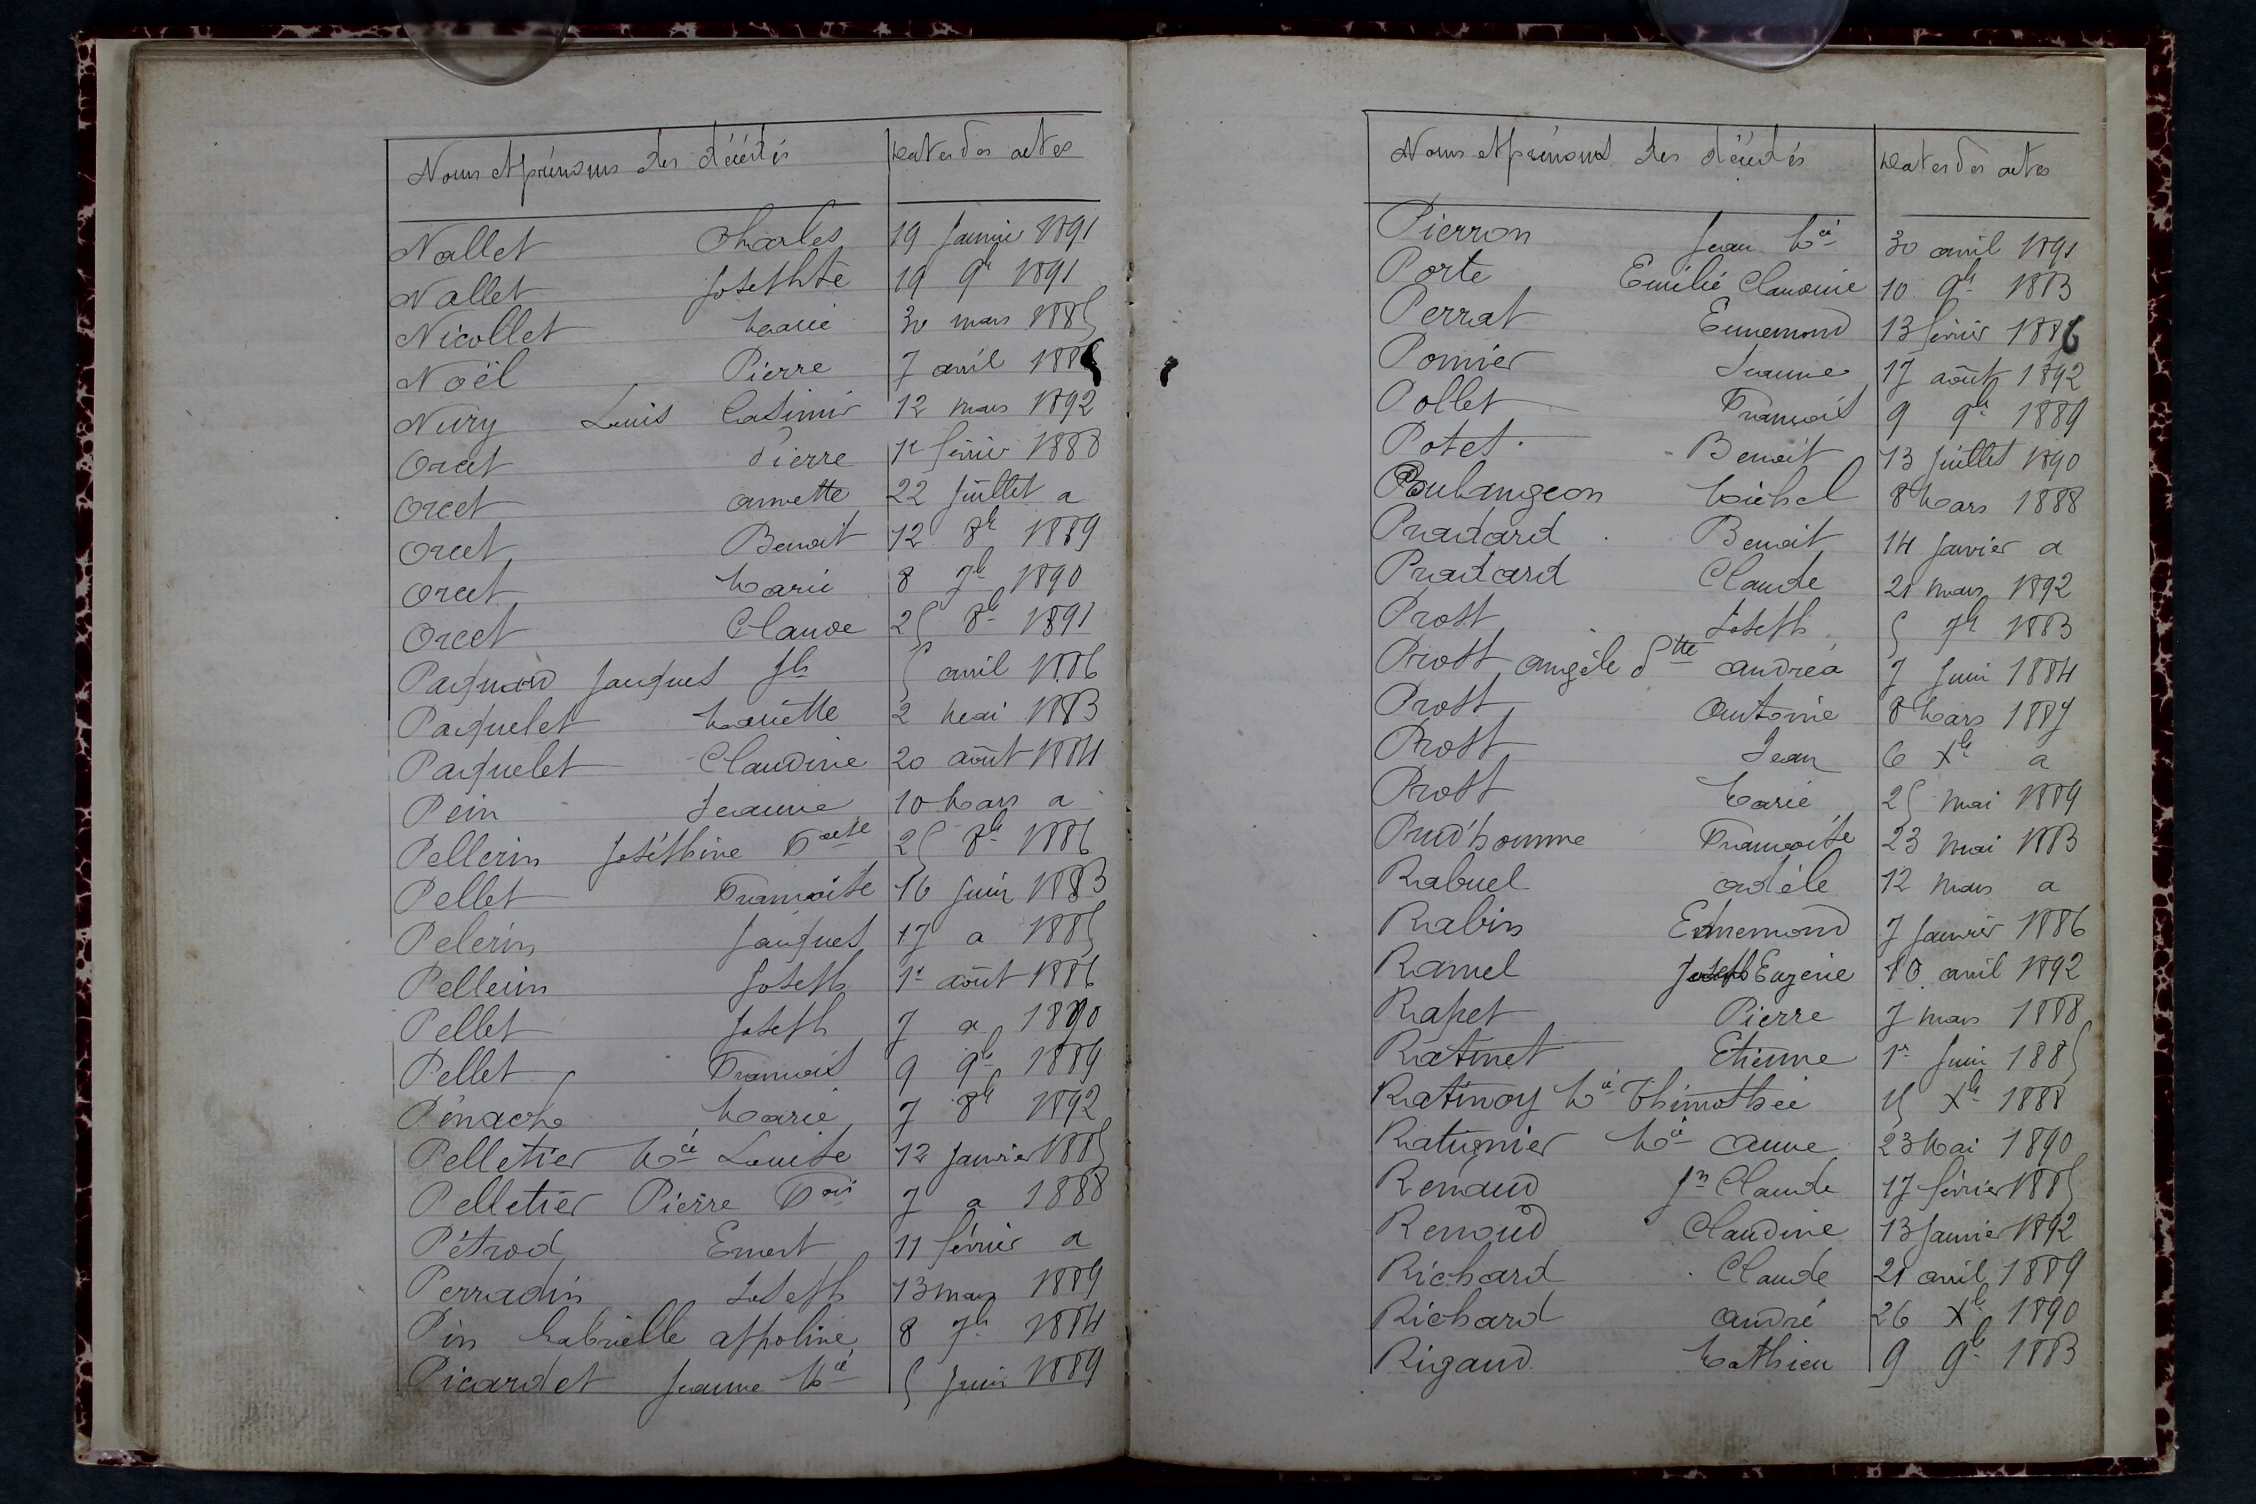 Noms et prénoms des décédés Dates des actes
Nallet Charles 19 Janvier 1891
Nallet Josephte 19 9b 1891
Nicollet Marie 30 mars 1885
Noël Pierre 7 avril 1885
Nury Louis Casimir 12 mars 1892
Orcet Pierre 1r février 1888
Orcet annette 22 Juillet a
Orcet Benoit 12 8b 1889
Orcet Marie 8 7b 1890
Orcet Claude 25 8b 1891
Paquand Jacques Jh 5 avril 1886
Paquelet Mariette 2 Mai 1883
Paquelet Claudine 20 août 1884
Pein Jeanne 10 Mars a
Pellerin Joséphine 25 8b 1886
Pellet Françoise 16 Juin 1883
Pelerin Jacques 17 a 1885
Pellerin Joseph 1r août 1886
Pellet Joseph 7 a 1890
Pellet François 9 9b 1889
Pinache Marie 7 8b 1892
Pelletier Mie Louise 12 Janvier 1885
Pelletier Pierre Fois 7 a 1888
Pétrod Ernest 11 février a
Perradin Joseph 13 mars 1889
Pin Gabrielle appoline 8 7b 1884
Picardet Jeanne Mie 5 Juin 1889
Noms et prénoms des décédés Dates des actes
Pierron Jean Mie 30 avril 1891
Porte Emilie Claudine 10 9b 1883
Perrat Ennemond 13 février 1886
Pomier Jeanne 17 août 1892
Pollet François 9 9b 1889
Potet Benoit 13 Juillet 1890
Poulangeon Michel 8 Mars 1888
Pradard Benoit 14 Janvier a
Pradard Claude 21 mars 1892
Prost Joseph 5 7b 1883
Prost angèle andréa 7 Juin 1884
Prost Antoine 8 Mars 1887
Prost Jean 6 Xb a
Prost Marie 25 mai 1889
Prud'homme Françoise 23 mai 1883
Rabuel adèle 12 mars a
Rabin Ennemond 7 Janvier 1886
Ramel Joseph Eugénie 10 avril 1892
Rapet Pierre 7 mars 1888
Ratinet Etienne 1r Juin 1885
Ratinoy Mie Thimothée Xb 1888
Raturnier Mie anne 23 Mai 1890
Renaud Jn Claude 17 février 1885
Renoud Claudine 13 Janvier 1892
Richard Claude 21 avril 1889
Richard andré 26 Xb 1890
Rigaud Mathieu 9 9b 1883